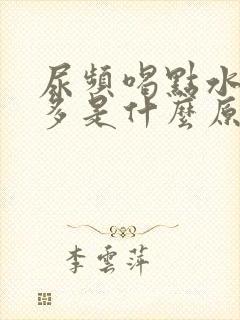 尿頻喝點水
多是什麼原
李雲萍